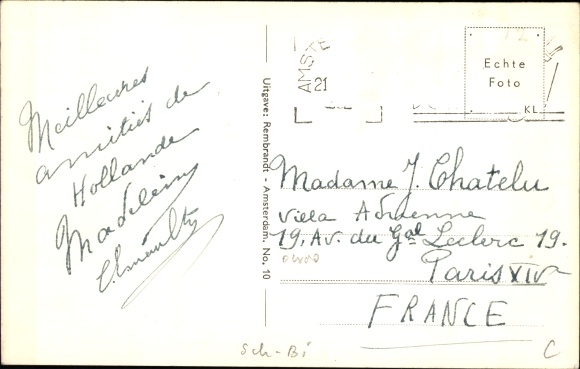 Meilleures
amitiés de
Hollande
Madeleine
Uitgave: Rembrandt - Amsterdam. No. 10
AMSTE
21
Echte
Foto
KL
Madame J. Chatelu
Villa Adrienne
19, Av. du Gal Leclerc 19.
Paris XIV
FRANCE
Sch-Bi
C